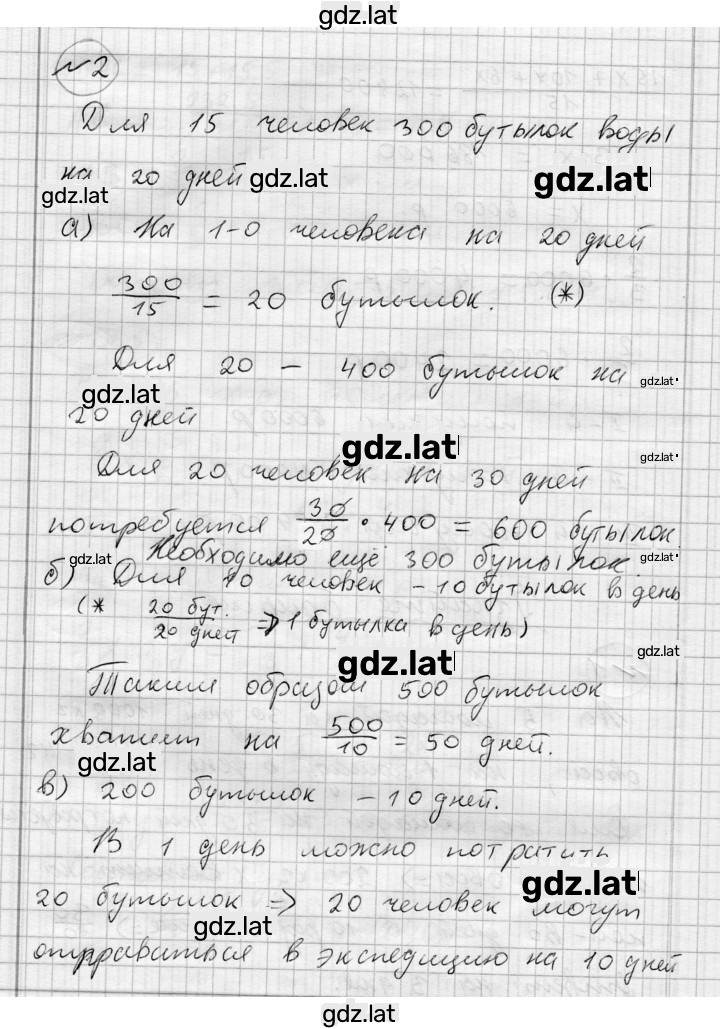 gdz.lat
№2
Для 15 человек 300 бутылок воды
на 20 дней gdz.lat gdz.lat
gdz.lat
а) На 1-о человека на 20 дней
300/15 = 20 бутылок. (*)
Для 20 – 400 бутылок на gdz.lat
gdz.lat
20 дней
gdz.lat gdz.lat
Для 20 человек на 30 дней
потребуется 30/20 · 400 = 600 бутылок.
Необходимо ещё 300 бутылок gdz.lat
gdz.lat
б) Для 10 человек – 10 бутылок в день
(* 20 бут./20 дней => 1 бутылка в день)
gdz.lat gdz.lat
Таким образом 500 бутылок
хватит на 500/10 = 50 дней.
gdz.lat
в) 200 бутылок – 10 дней.
В 1 день можно потратить
gdz.lat
20 бутылок => 20 человек могут
gdz.lat
отправиться в экспедицию на 10 дней
gdz.lat